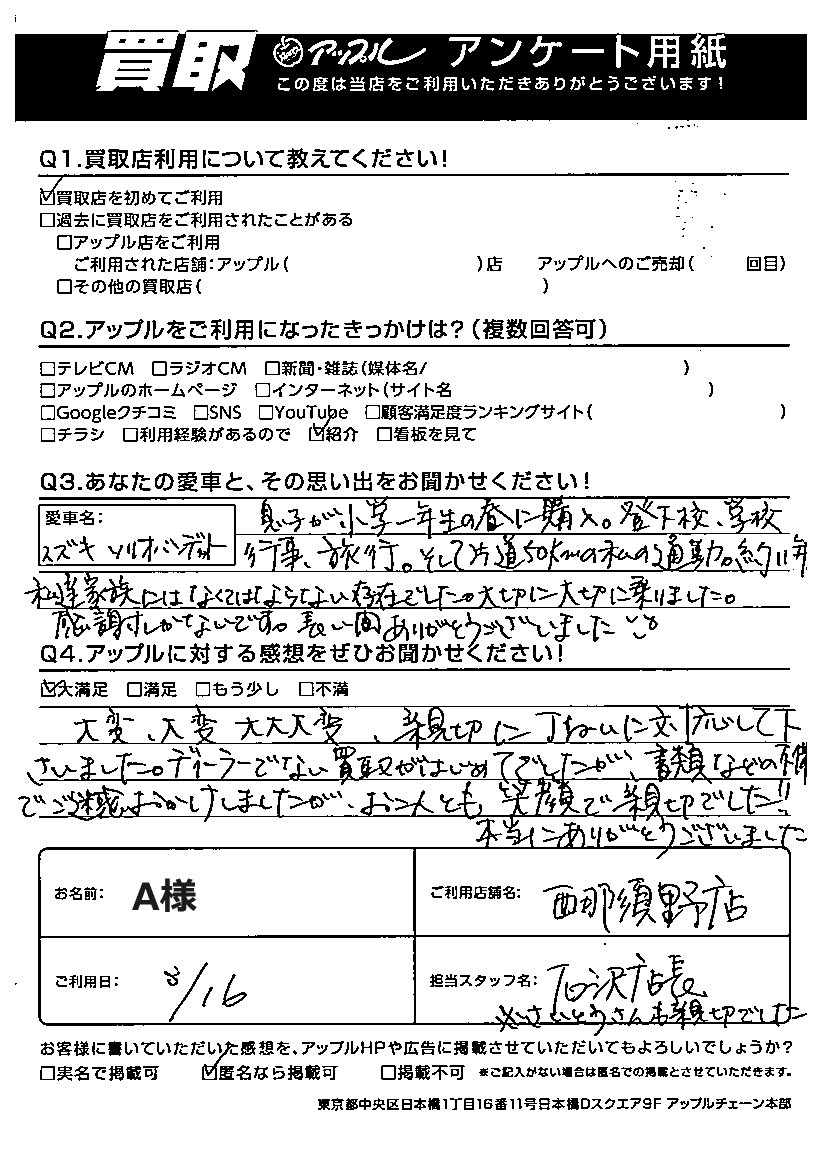 買取 アップル アンケート用紙
この度は当店をご利用いただきありがとうございます!
Q1.買取店利用について教えてください!
☑買取店を初めてご利用
□過去に買取店をご利用されたことがある
□アップル店をご利用
ご利用された店舗:アップル( )店 アップルへのご売却( 回目)
□その他の買取店( )
Q2.アップルをご利用になったきっかけは?(複数回答可)
□テレビCM □ラジオCM □新聞・雑誌(媒体名/ )
□アップルのホームページ □インターネット(サイト名 )
□Googleクチコミ □SNS □YouTube □顧客満足度ランキングサイト( )
□チラシ □利用経験があるので ☑紹介 □看板を見て
Q3.あなたの愛車と、その思い出をお聞かせください!
愛車名:
スズキ ソリオバンデット
息子が小学一年生の春に購入。登下校、学校
行事、旅行。そして片道50kmの私の通勤。約11年
私達家族にはなくてはならない存在でした。大切に大切に乗りました。
感謝しかないです。長い間ありがとうございました
Q4.アップルに対する感想をぜひお聞かせください!
☑大満足 □満足 □もう少し □不満
大変、大変 大大大変、親切に丁ねいに対応して下
さいました。ディーラーでない買取がはじめてでしたが、書類などの不備
でご迷惑おかけしましたが、お二人とも笑顔で親切でした!!
本当にありがとうございました
お名前: A様
ご利用店舗名: 西那須野店
ご利用日: 3/16
担当スタッフ名: 石沢店長
※さいとうさんも親切でした
お客様に書いていただいた感想を、アップルHPや広告に掲載させていただいてもよろしいでしょうか?
□実名で掲載可 ☑匿名なら掲載可 □掲載不可 ※ご記入がない場合は匿名での掲載とさせていただきます。
東京都中央区日本橋1丁目16番11号日本橋Dスクエア9F アップルチェーン本部